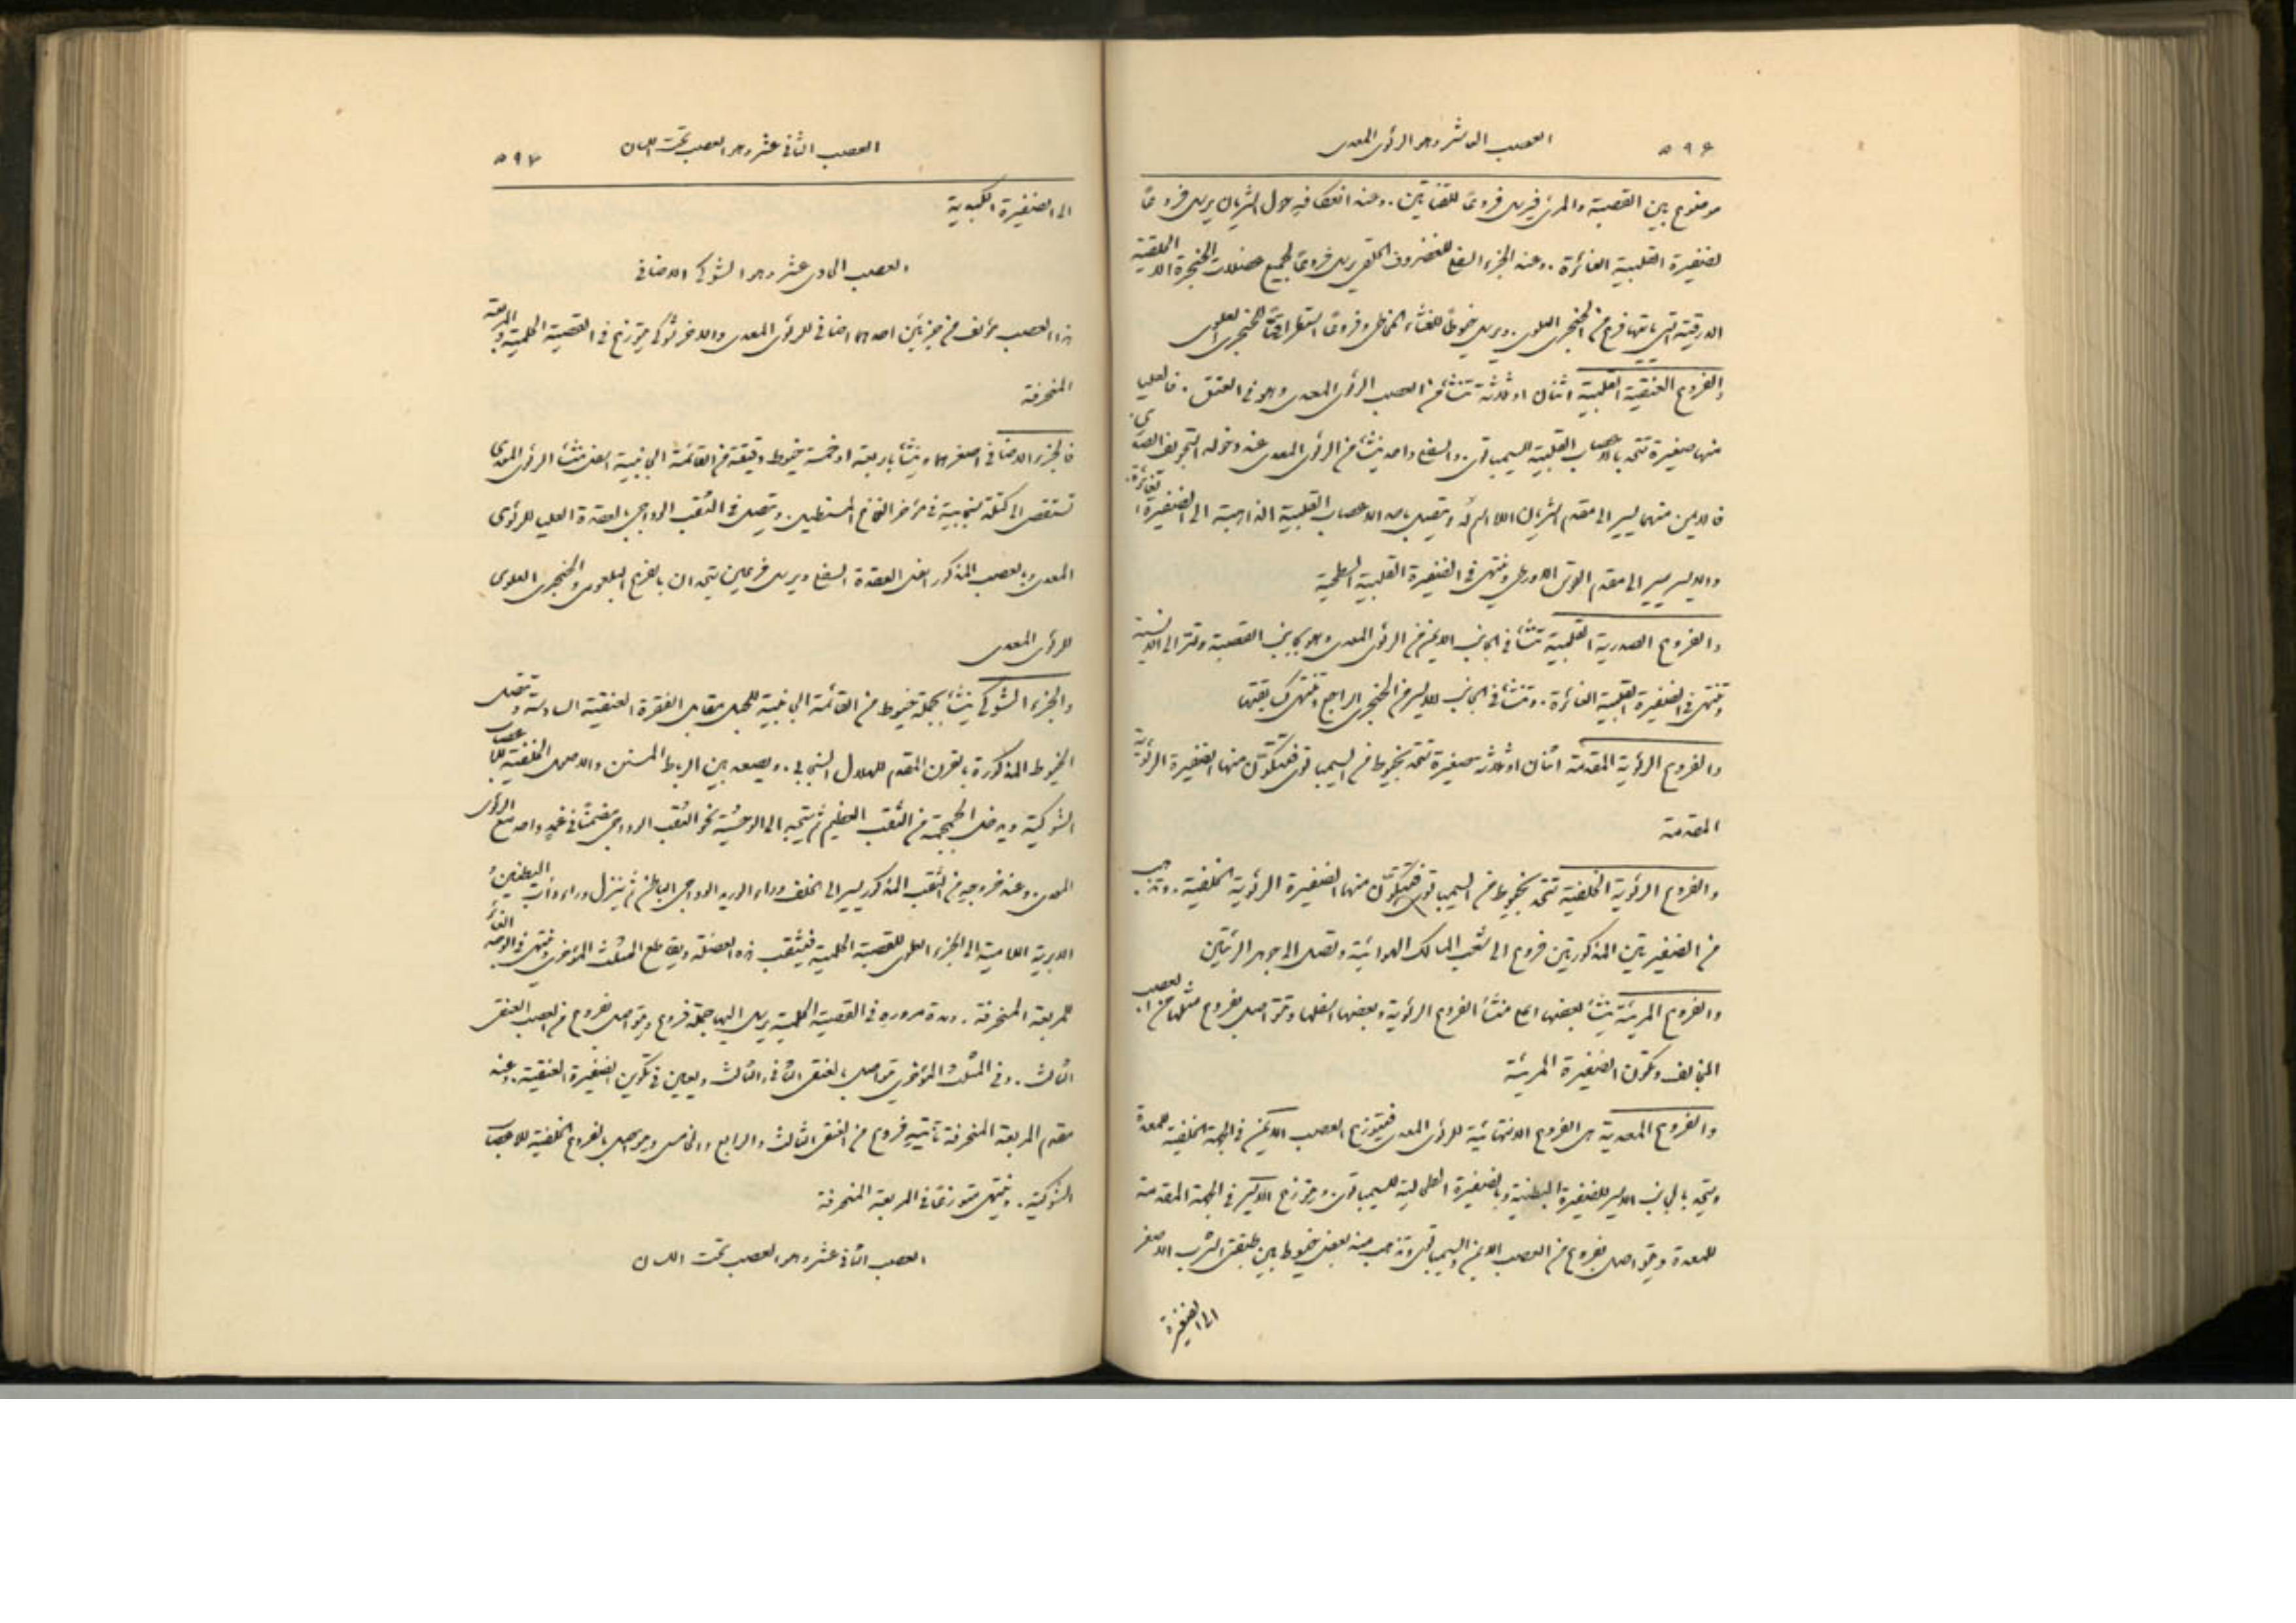 ٥٩٦ العصب العاشر وهو الرئوي المعدي
موضوع بين القصبة والمرئ فيرسل فروعًا للقناتين. وعند انعكافه حول الشريان يرسل فروعًا
لضفيرة القلبية الغائرة. وعند الجزء السفلي للغضروف الحلقي يرسل فروعًا لجميع عضلات الحنجرة الا الحلقية
الدرقية التي ياتيها فرع من الحنجري العلوي. ويرسل خيوطًا للغشاء المخاطي وفروعًا للحنجري العلوي
والفروع العنقية القلبية اثنان او ثلاثة تنشأ من العصب الرئوي المعدي وهو في العنق. فالعليا
منها صغيرة تتحد بالاعصاب القلبية للسيمباتوي. والسفلى واحد ينشأ من الرئوي المعدي عند دخوله التجويف الصدري
فالايمن منهما يسير الى مقدم الشريان اللااسم له ويتصل باحد الاعصاب القلبية الذاهبة الى الضفيرة الغائرة
والايسر يسير الى مقدم القوس الاورطي وينتهي في الضفيرة القلبية السطحية
والفروع الصدرية القلبية تنشأ في الجانب الايمن من الرئوي المعدي وهو بجانب القصبة وتمر الى الانسية
وتنتهي في الضفيرة القلبية الغائرة. وتنشأ في الجانب الايسر من الحنجري الراجع وتنتهي كسابقتها
والفروع الرئوية المقدمة اثنان او ثلاثة صغيرة تتحد بخيوط من السيمباتوي فتتكون منها الضفيرة الرئوية
المقدمة
والفروع الرئوية الخلفية تتحد بخيوط من السيمباتوي فتتكون منها الضفيرة الرئوية الخلفية. وتذهب
من الضفيرتين المذكورتين فروع الى شعب المسالك الهوائية وتصل الى جوهر الرئتين
والفروع المريئية ينشأ بعضها اعلى منشأ الفروع الرئوية وبعضها اسفلها وتتواصل بفروع مثلها من العصب
المخالف وتكون الضفيرة المريئية
والفروع المعدية هي الفروع الانتهائية للرئوي المعدي فيتوزع العصب الايمن في الجهة الخلفية للمعدة
ويتحد بالجانب الايسر للضفيرة البطنية وبالضفيرة الطحالية للسيمباتوي. ويتوزع الايسر في الجهة المقدمة
للمعدة ويتواصل بفروع من العصب الايمن والسيمباتوي وتذهب منه بعض خيوط بين طبقتي الثرب الاصغر
الى الضفيرة
العصب الثاني عشر وهو العصب تحت اللسان ٥٩٧
الى الضفيرة الكبدية
العصب الحادي عشر وهو الشوكي الاضافي
هذا العصب مؤلف من جزئين احدهما اضافي للرئوي المعدي والاخر شوكي يتوزع في القصية الحلمية والمربعة
المنحرفة
فالجزء الاضافي اصغرهما وينشأ باربعة او خمسة خيوط دقيقة من القائمة الجانبية اسفل منشأ الرئوي المعدي
تستقصى الى كتلة سنجابية في مؤخر النخاع المستطيل. ويتصل في الثقب الوداجي بالعقدة العليا للرئوي
المعدي وبالعصب المذكور اسفل العقدة السفلى ويرسل فرعين يتحدان بالفرع البلعومي والحنجري العلوي
للرئوي المعدي
والجزء الشوكي ينشأ بجملة خيوط من القائمة الجانبية للحبل مقابل الفقرة العنقية السادسة وتتصل
الخيوط المذكورة بالقرن المقدم للهلال السنجابي. ويصعد بين الرباط المسنن والاصول الخلفية للاعصاب
الشوكية ويدخل الجمجمة من الثقب العظيم ثم يتجه الى الوحشية نحو الثقب الوداجي مضمنًا في غمد واحد مع الرئوي
المعدي. وعند خروجه من الثقب المذكور يسير الى الخلف وراء الوريد الوداجي الباطن ثم ينزل وراء ذات البطنين
الابرية اللامية الى الجزء العلوي للقصية الحلمية فيثقب هذه العضلة ويقاطع المثلث المؤخري وينتهي في الوجه الغائر
للمربعة المنحرفة. ومدة مروره في القصية الحلمية يرسل اليها جملة فروع ويتواصل بفروع من العصب العنقي
الثالث. وفي المثلث المؤخري يتواصل بالعنقي الثاني والثالث ويعين في تكوين الضفيرة العنقية. وعند
مقدم المربعة المنحرفة تأتيه فروع من العنقي الثالث والرابع والخامس ويتواصل بالفروع الخلفية للاعصاب
الشوكية. وينتهي متوزعًا في المربعة المنحرفة
العصب الثاني عشر وهو العصب تحت اللسان